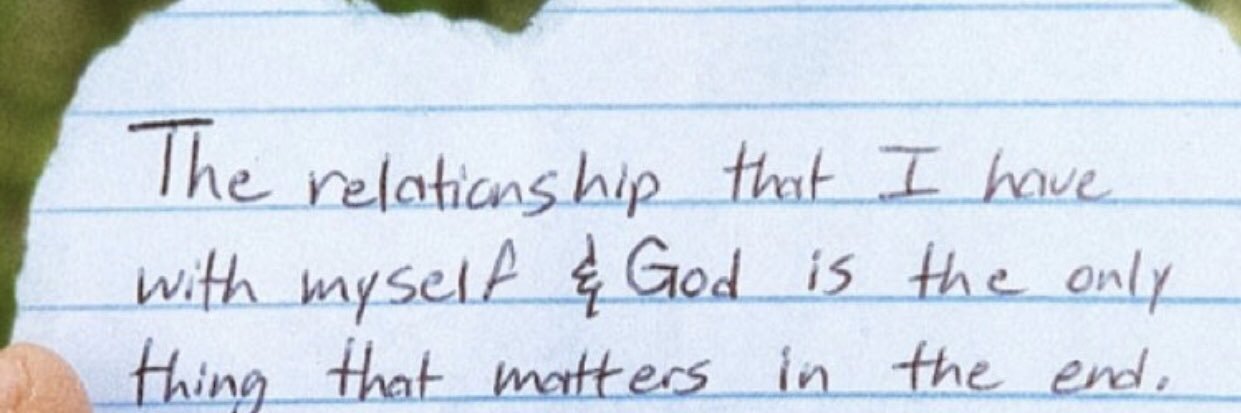 The relationship that I have
with myself & God is the only
thing that matters in the end.